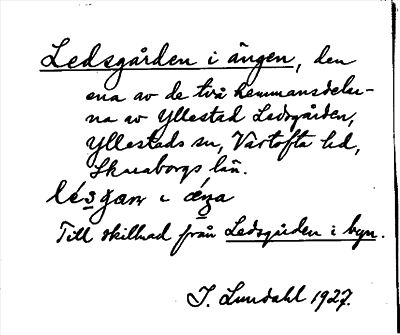 Ledsgården i ängen, den
ena av de två hemmansdelar-
na av Yllestad Ledsgården,
Yllestads sn, Vartofta hd,
Skaraborgs län.
lésgaɳ ɩ ǽŋa
Till skillnad från Ledsgården i byn.
I. Lundahl 1927.